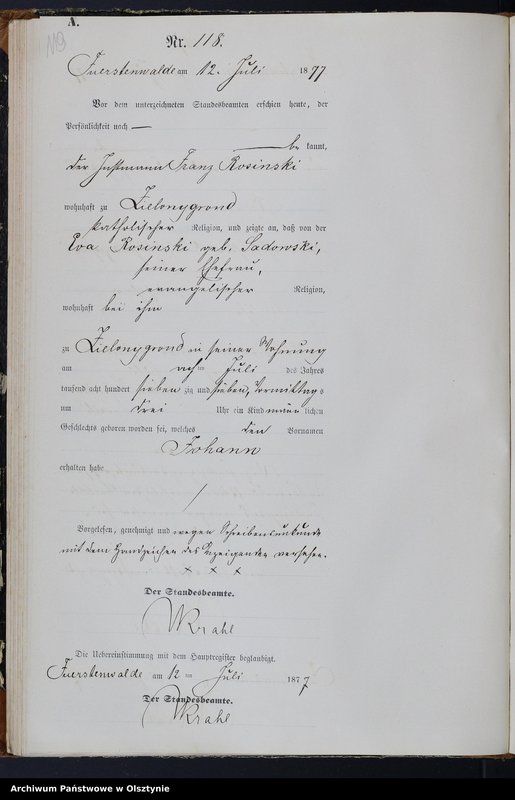 A.
119
Nr. 118.
Fuerstenwalde am 12. Juli 1877
Vor dem unterzeichneten Standesbeamten erschien heute, der
Persönlichkeit nach —
— be kannt,
der Instmann Franz Rosinski
wohnhaft zu Zielonygrond
katholischer Religion, und zeigte an, daß von der
Eva Rosinski geb. Sadowski,
seiner Ehefrau,
evangelischer Religion,
wohnhaft bei ihm
zu Zielonygrond in seiner Wohnung
am ten Juli des Jahres
tausend acht hundert sieben zig und sieben, Vormittags
um drei Uhr ein Kind männ lichen
Geschlechts geboren worden sei, welches den Vornamen
Johann
erhalten habe
/
Vorgelesen, genehmigt und wegen Schreibensunkunde
mit dem Handzeichen des Anzeigenden versehen.
x x x
Der Standesbeamte.
Krahl
Die Uebereinstimmung mit dem Hauptregister beglaubigt.
Fuerstenwalde am 12 ten Juli 1877
Der Standesbeamte.
Krahl
Archiwum Państwowe w Olsztynie